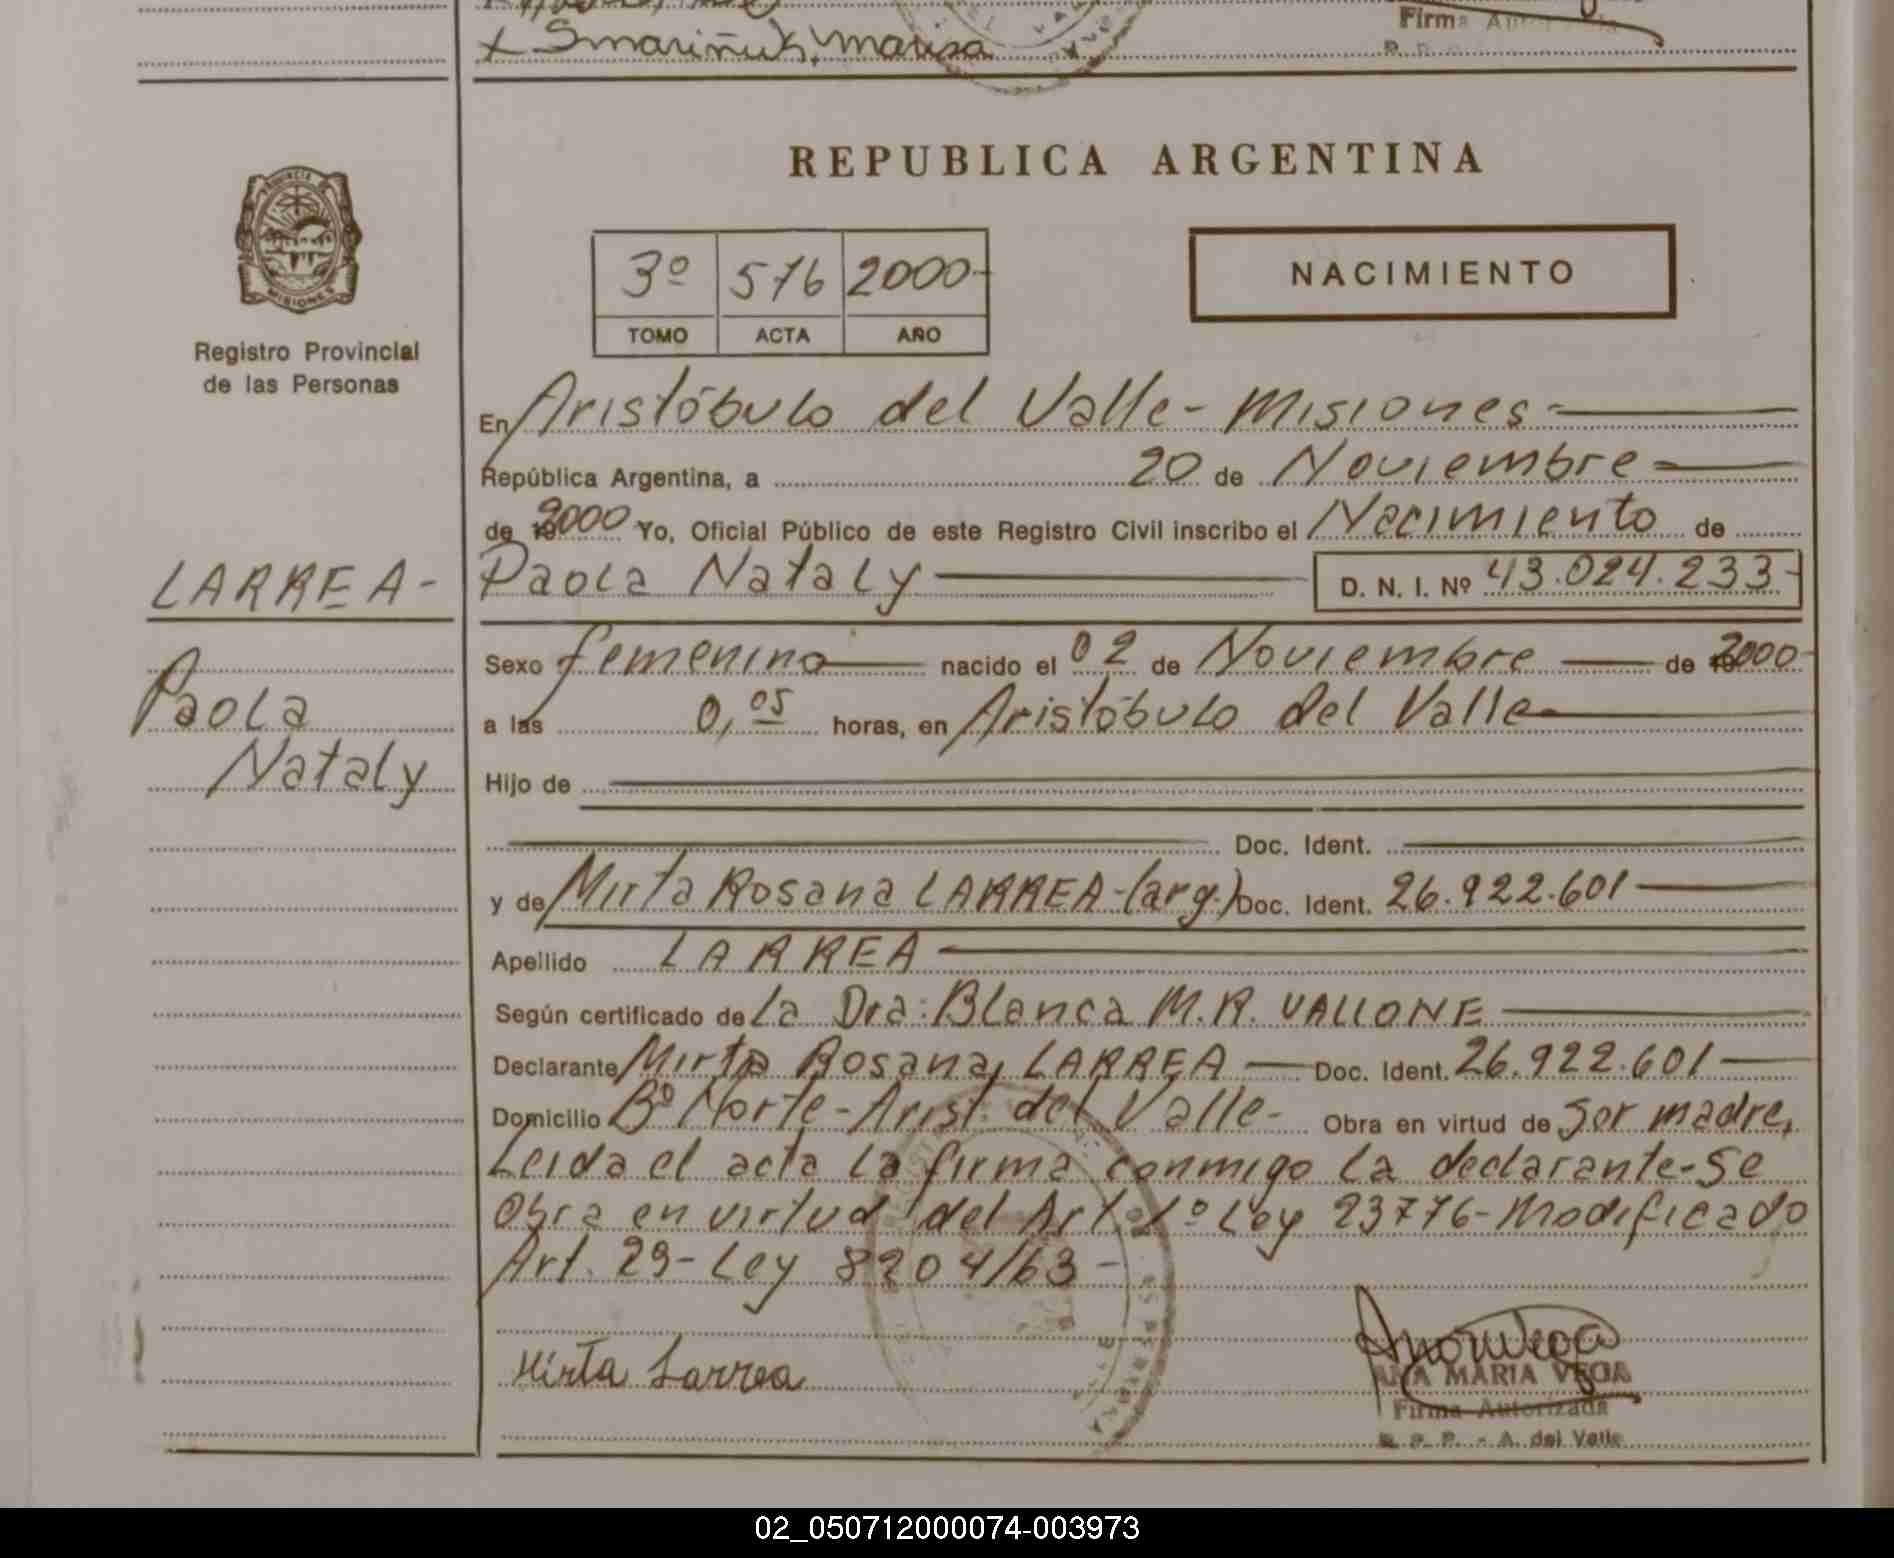 Firma Autorizada
REPUBLICA ARGENTINA
PROVINCIA DE
MISIONES
Registro Provincial
de las Personas
3º 576 2000-
TOMO ACTA AÑO
NACIMIENTO
En Aristóbulo del Valle - Misiones -
República Argentina, a 20 de Noviembre
de 2000 Yo, Oficial Público de este Registro Civil inscribo el Nacimiento de
LARREA-
Paola Nataly D. N. I. Nº 43.024.233-
Sexo femenino nacido el 02 de Noviembre de 2000-
Paola
a las 0,05 horas, en Aristóbulo del Valle
Nataly
Hijo de
Doc. Ident.
y de Mirta Rosana LARREA-(arg.) Doc. Ident. 26.922.601
Apellido LARREA
Según certificado de La Dra: Blanca M.R. VALLONE
Declarante Mirta Rosana LARREA Doc. Ident. 26.922.601
Domicilio Bº Norte - Arist. del Valle - Obra en virtud de ser madre,
Leida el acta la firma conmigo la declarante - Se
Obra en virtud del Art. 1º Ley 23776 - Modificado
Art. 29 - Ley 8204/63 -
Mirta Larrea
ANA MARIA VEGA
Firma Autorizada
R. P. P. - A. del Valle
02_050712000074-003973